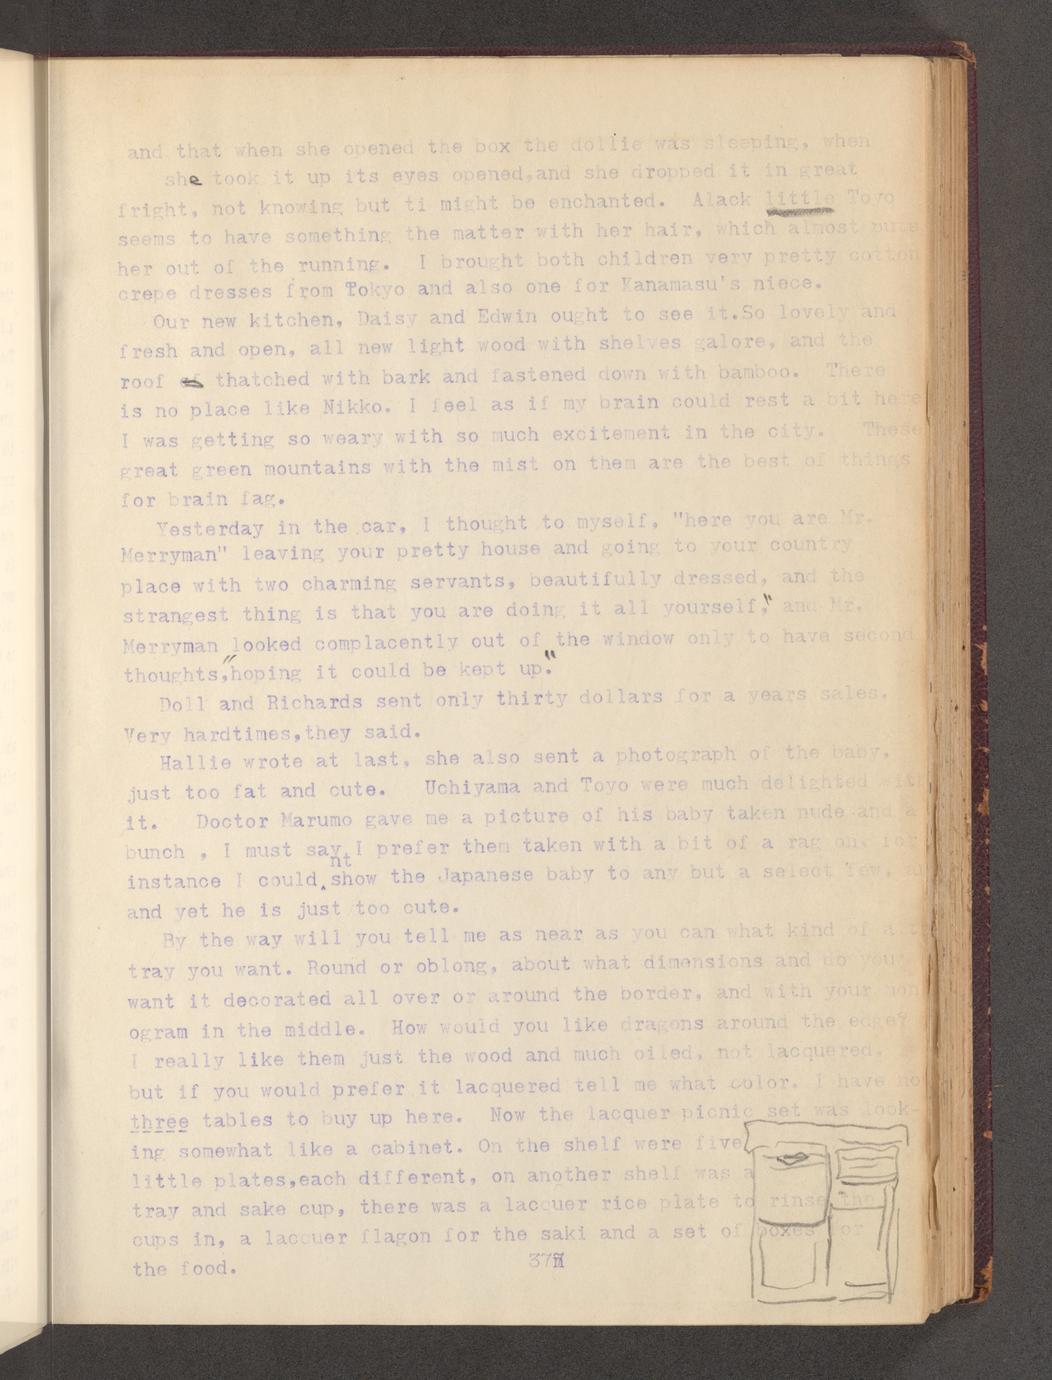 and that when she opened the box the dollie was sleeping, when
she took it up its eyes opened,and she dropped it in great
fright, not knowing but ti might be enchanted.  Alack little Toyo
seems to have something the matter with her hair, which almost puts
her out of the running.  I brought both children very pretty cotton
crepe dresses from Tokyo and also one for Kanamasu's niece.
Our new kitchen, Daisy and Edwin ought to see it.So lovely and
fresh and open, all new light wood with shelves galore, and the
roof thatched with bark and fastened down with bamboo.  There
is no place like Nikko. I feel as if my brain could rest a bit here
I was getting so weary with so much excitement in the city.   These
great green mountains with the mist on them are the best of things
for brain fag.
Yesterday in the car, I thought to myself, "here you are Mr.
Merryman" leaving your pretty house and going to your country
place with two charming servants, beautifully dressed, and the
strangest thing is that you are doing it all yourself," and Mr.
Merryman looked complacently out of the window only to have second
thoughts,"hoping it could be kept up."
Doll and Richards sent only thirty dollars for a years sales.
Very hardtimes,they said.
Hallie wrote at last, she also sent a photograph of the baby,
just too fat and cute.   Uchiyama and Toyo were much delighted with
it.   Doctor Marumo gave me a picture of his baby taken nude and a
bunch , I must say, I prefer them taken with a bit of a rag on, for
instance I couldnt show the Japanese baby to any but a select few,
and yet he is just too cute.
By the way will you tell me as near as you can what kind of a
tray you want. Round or oblong, about what dimensions and do you
want it decorated all over or around the border, and with your mon
ogram in the middle.  How would you like dragons around the edge?
I really like them just the wood and much oiled, not lacquered,
but if you would prefer it lacquered tell me what color. I have no
three tables to buy up here.  Now the lacquer picnic set was look-
ing somewhat like a cabinet. On the shelf were five
little plates,each different, on another shelf was a
tray and sake cup, there was a lacquer rice plate to rinse the
cups in, a lacquer flagon for the saki and a set of boxes for
the food.
377